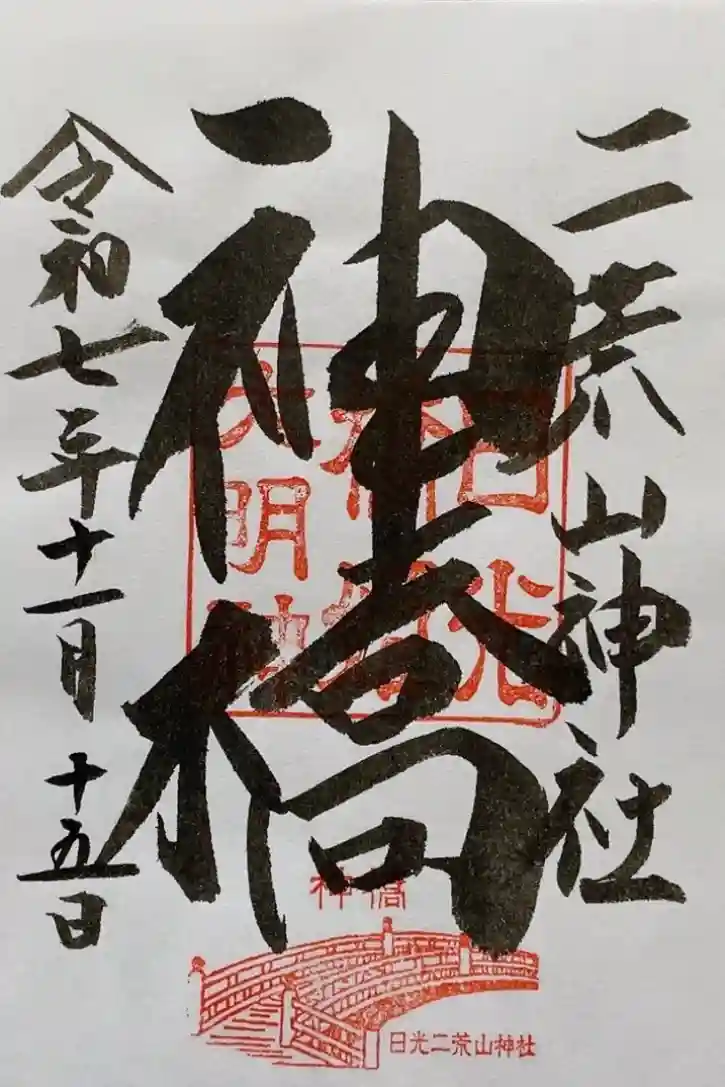 二荒山神社
神橋
令和七年十一月十五日
日光
神橋
日光二荒山神社